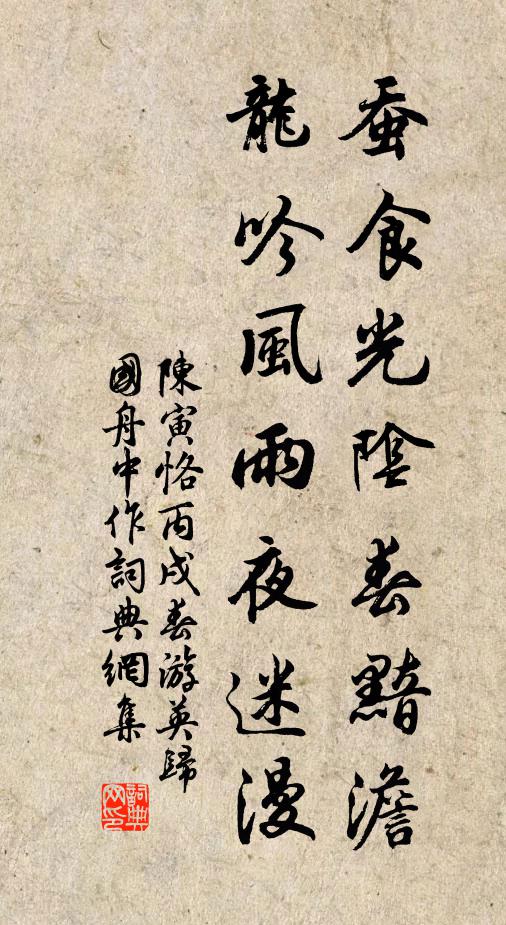 蚕食光陰春黯澹
龍吟風雨夜迷漫
陳寅恪丙戌春游英歸
國舟中作詞典網集
詞典網印